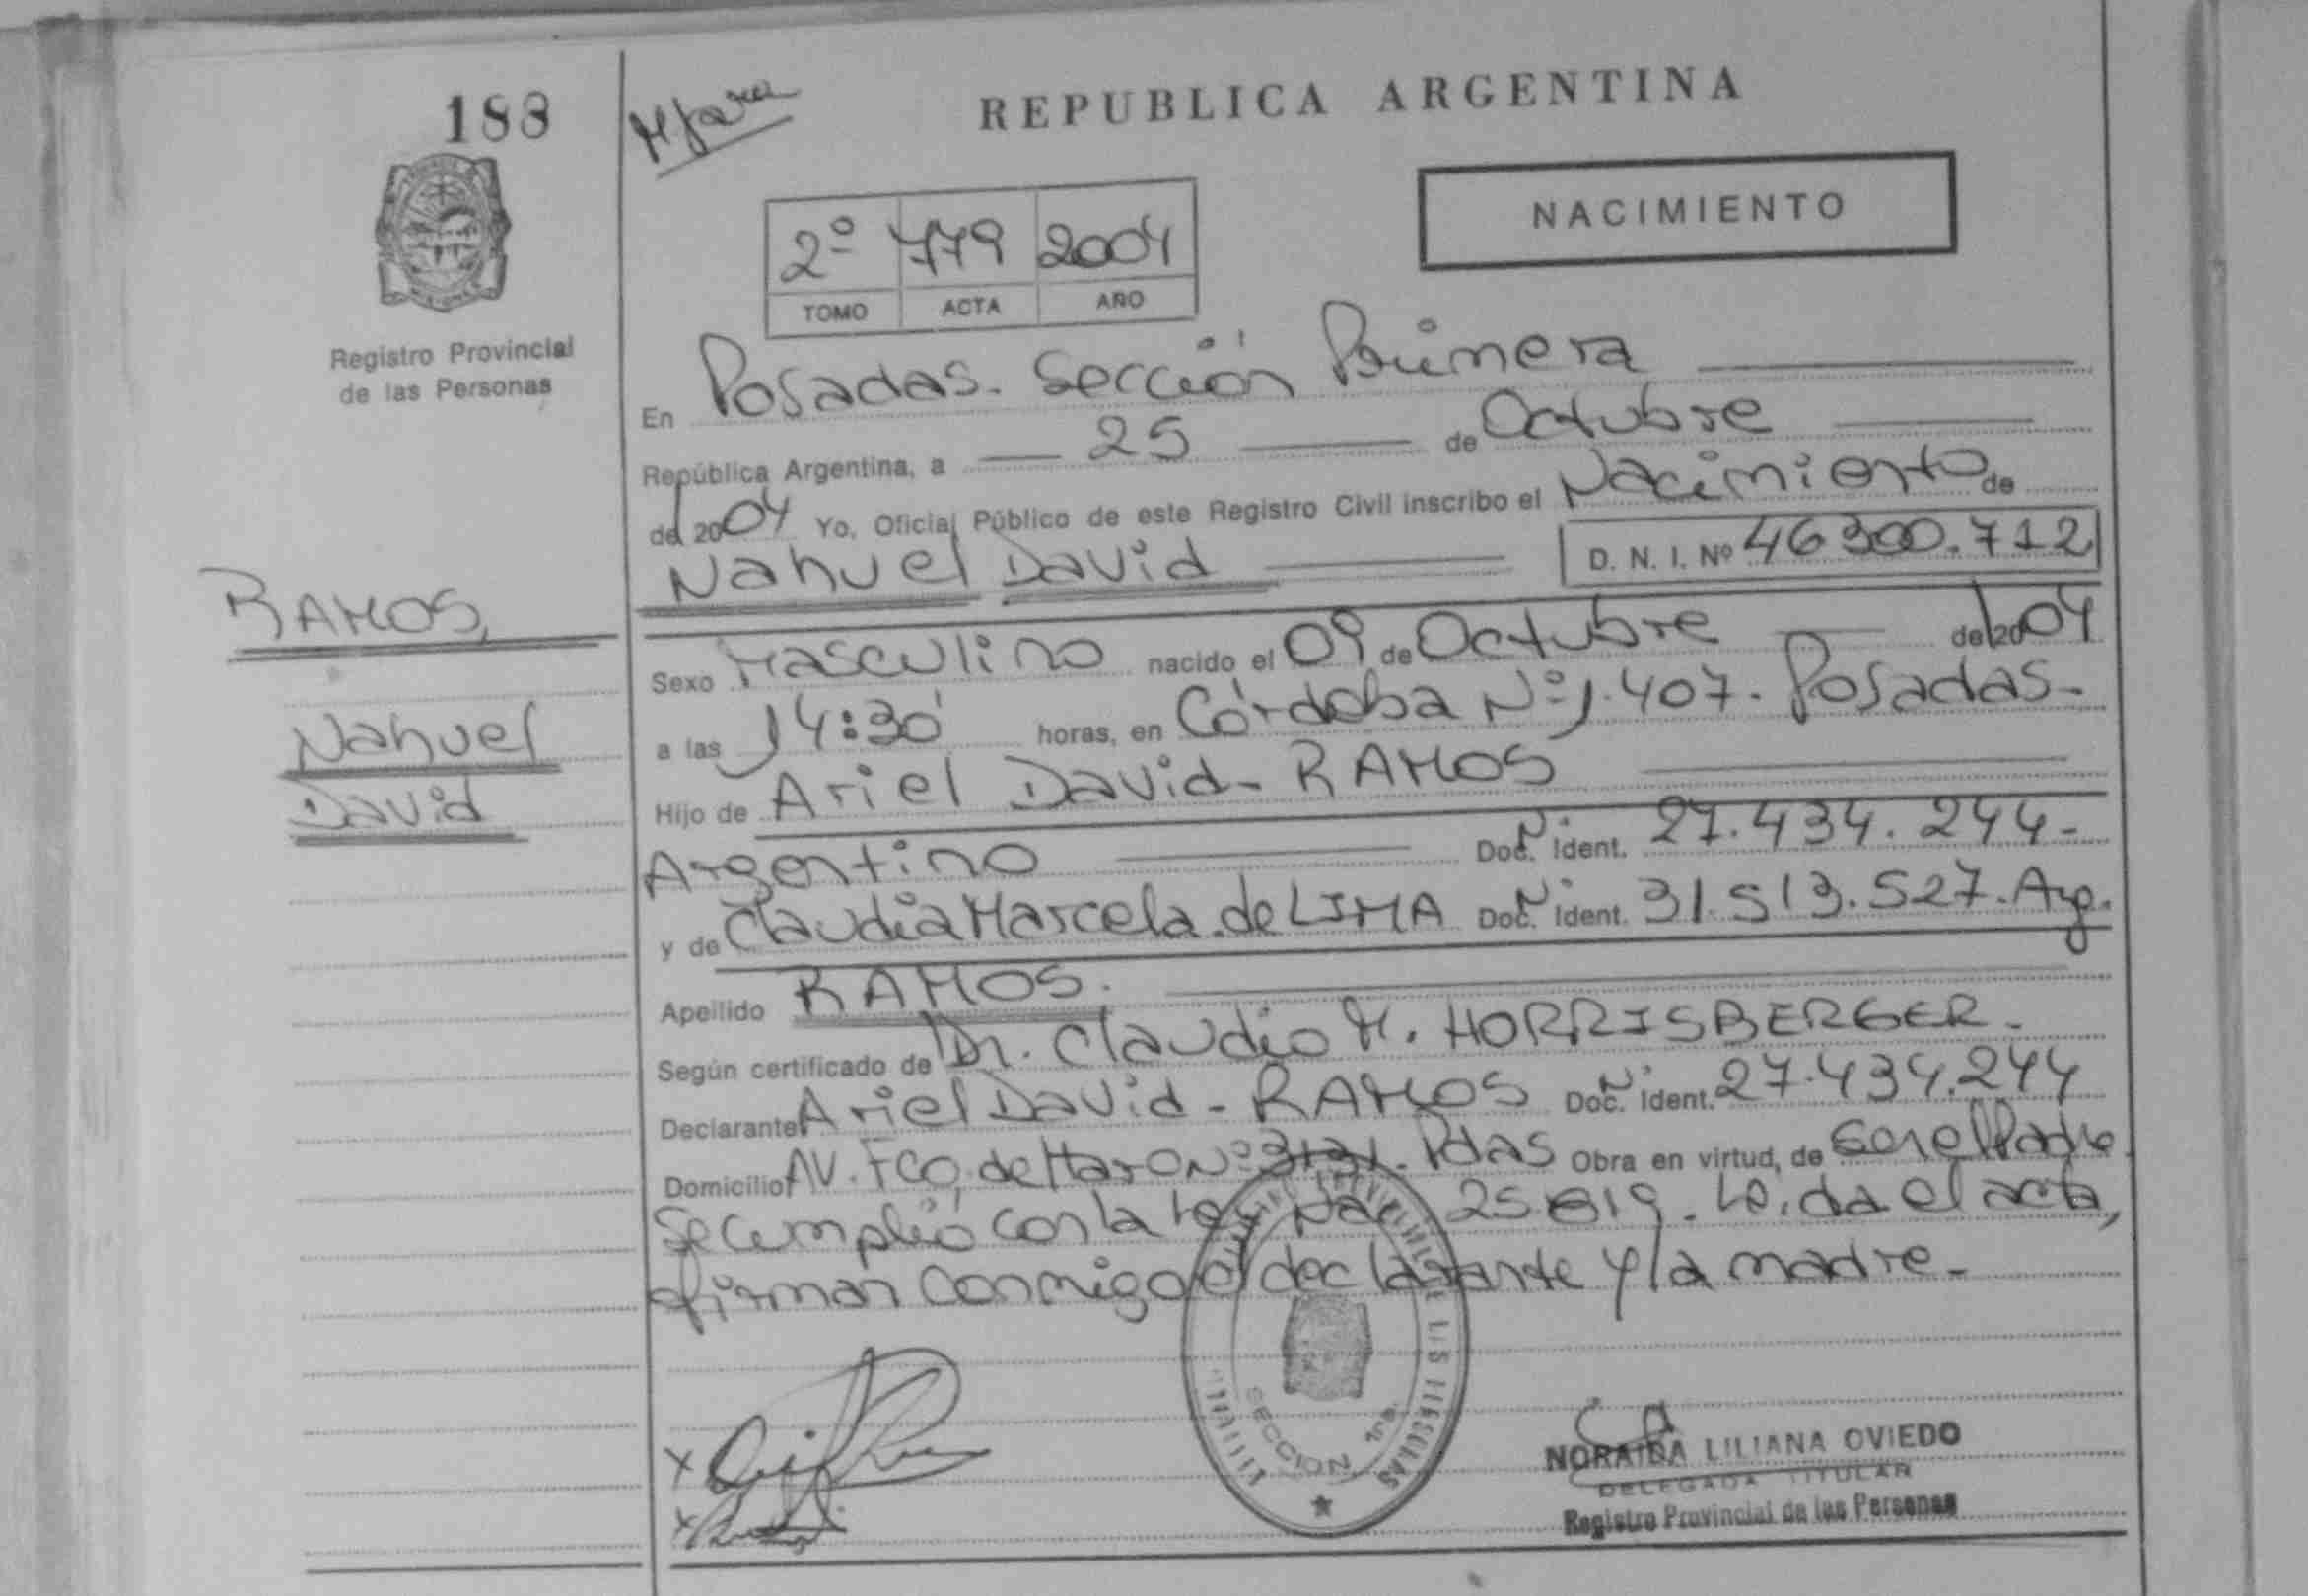 188
REPUBLICA ARGENTINA
NACIMIENTO
2º 779 2004
TOMO ACTA AÑO
Registro Provincial
de las Personas
En Posadas. Sección Primera
República Argentina, a 25 de Octubre
del 2004 Yo, Oficial Público de este Registro Civil inscribo el Nacimiento de
Nahuel David D. N. I. Nº 46300.712
RAMOS,
Nahuel
David
Sexo Masculino nacido el 09 de Octubre del 2004
a las 14:30 horas, en Córdoba Nº 1.407. Posadas-
Hijo de Ariel David - RAMOS
Argentino Doc. Ident. 27.434.244-
y de Claudia Marcela de LIMA Doc. Ident. 31.513.527. Arg.
Apellido RAMOS.
Según certificado de Dr. Claudio M. HORRISBERGER.
Declarante Ariel David - RAMOS Doc. Ident. 27.434.244
Domicilio AV. Fco. de Haro Nº 3131. Pdas Obra en virtud, de ser el Padre.
Se cumplió con la Ley Nac. 25.819. Leída el acta,
firman conmigo el declarante y la madre.
SECCION 1ra.
NORAIDA LILIANA OVIEDO
DELEGADA TITULAR
Registro Provincial de las Personas